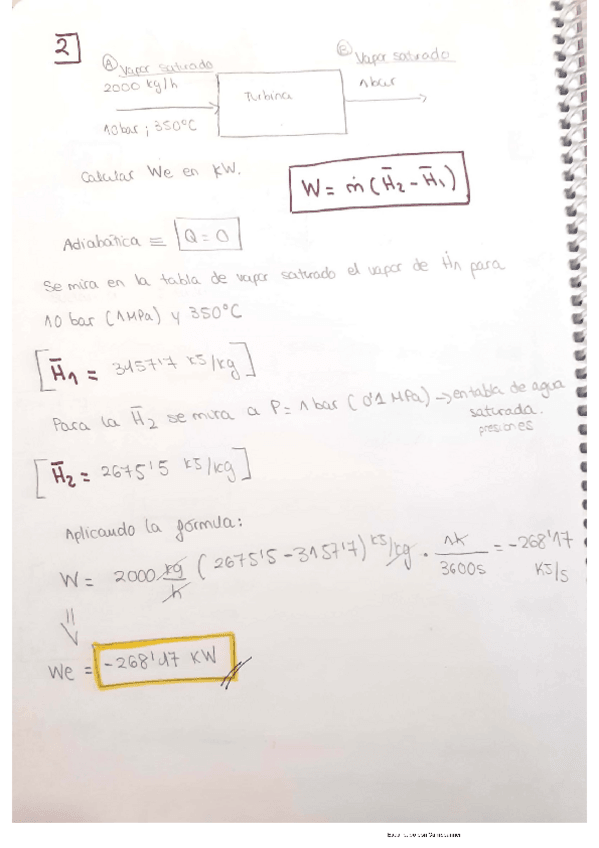 2
A Vapor saturado
2000 kg/h
10bar ; 350°C
Turbina
Vapor saturado
1bar
Calcular We en KW.
W = ṁ (H̄2 - H̄1)
Adiabática ≡ Q = 0
Se mira en la tabla de vapor saturado el vapor de Ḣ1 para
10 bar (1MPa) y 350°C
[H̄1 = 3157'7 KJ/kg]
Para la H̄2 se mira a P = 1 bar (0'1 MPa) → en tabla de agua
saturada.
presiones
[H̄2 = 2675'5 KJ/kg]
Aplicando la fórmula:
W = 2000 kg/h (2675'5 - 3157'7) KJ/kg · 1h/3600s = -268'17 KJ/s
We = -268'17 KW